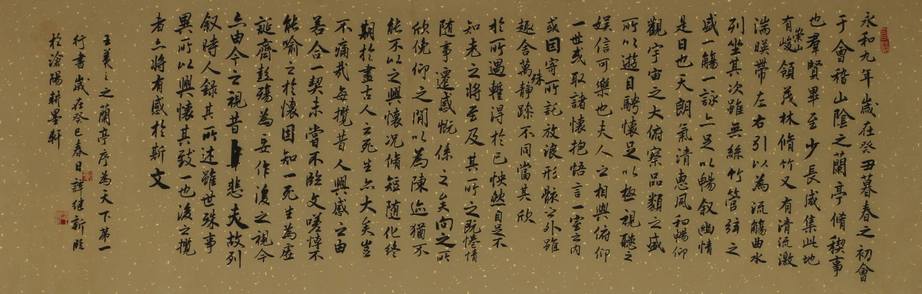 永和九年歲在癸丑暮春之初會
于會稽山陰之蘭亭脩稧事
也羣賢畢至少長咸集此地
有崇峻領茂林脩竹又有清流激
湍暎帶左右引以為流觴曲水
列坐其次雖無絲竹管弦之
盛一觴一詠亦足以暢叙幽情
是日也天朗氣清惠風和暢仰
觀宇宙之大俯察品類之盛
所以遊目騁懷足以極視聽之
娛信可樂也夫人之相與俯仰
一世或取諸懷抱悟言一室之內
或因寄所託放浪形骸之外雖
趣舍萬殊靜躁不同當其欣
於所遇蹔得於己怏然自足不
知老之將至及其所之既惓情
隨事遷感慨係之矣向之所
欣俛仰之閒以為陳迹猶不
能不以之興懷況脩短隨化終
期於盡古人云死生亦大矣豈
不痛哉每攬昔人興感之由
若合一契未嘗不臨文嗟悼不
能喻之於懷固知一死生為虛
誕齊彭殤為妄作後之視今
亦由今之視昔悲夫故列
叙時人錄其所述雖世殊事
異所以興懷其致一也後之攬
者亦將有感於斯文
王羲之蘭亭序為天下第一
行書歲在癸巳春日 繼新臨
於滄陽耕墨軒